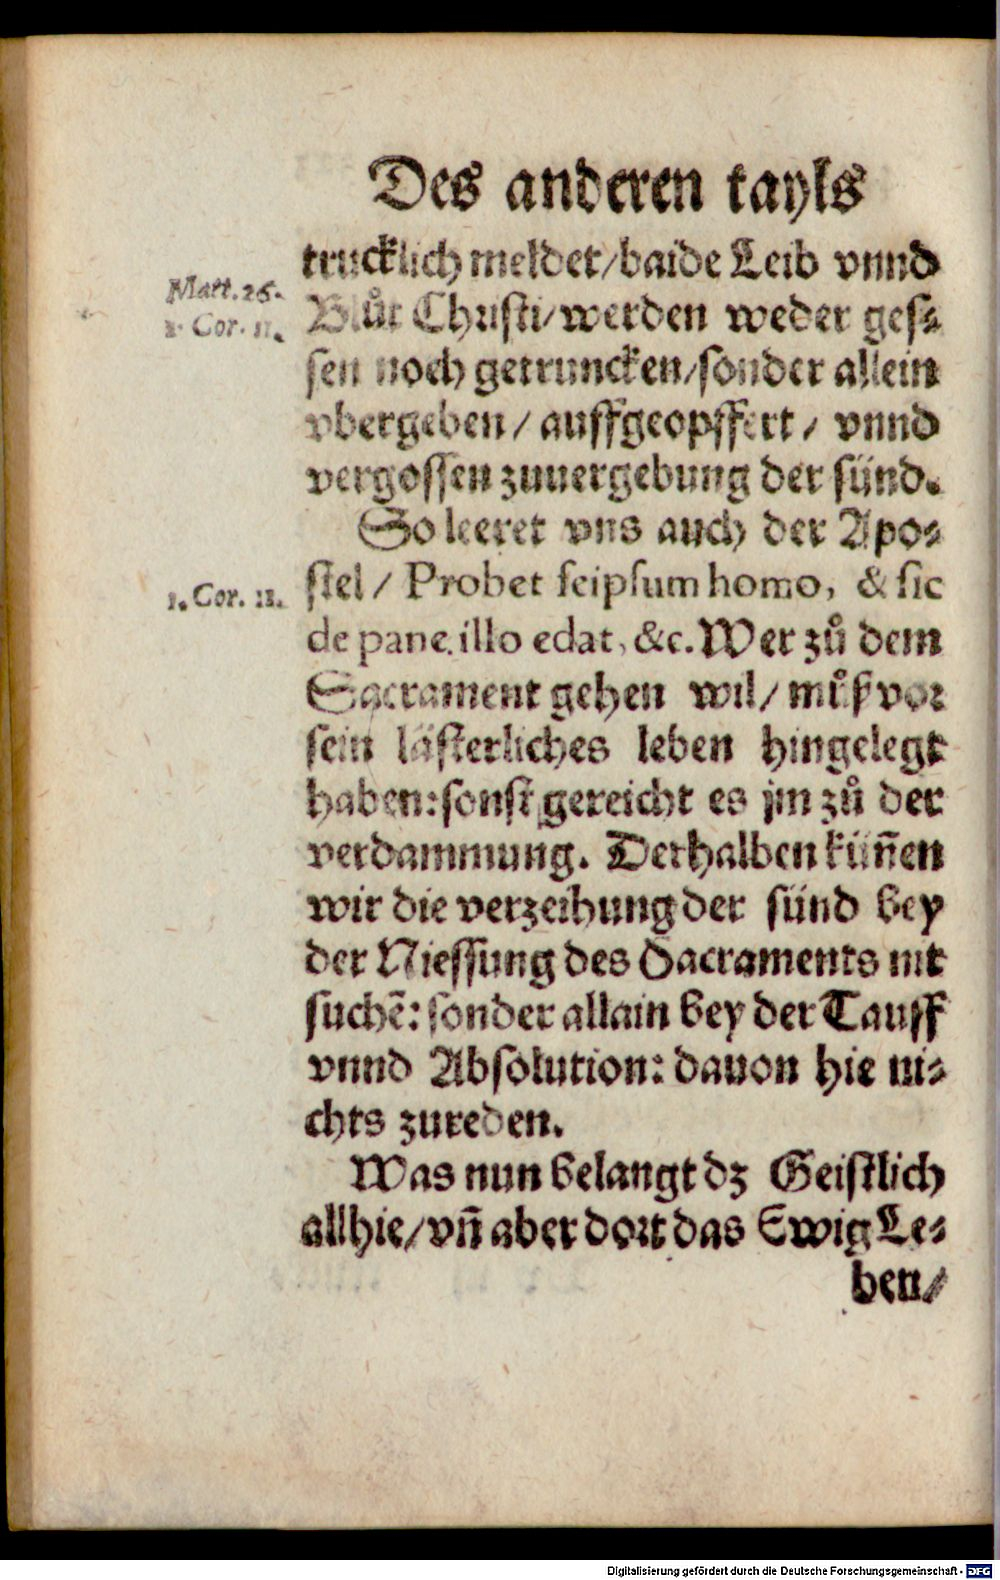 Des anderen tayls
trucklich meldet/baide Leib vnnd
Matt.26.
Blůt Christi/werden weder ges⸗
1. Cor. 11.
sen noch getruncken/sonder allein
vbergeben/ auffgeopffert/ vnnd
vergossen zuuergebung der sünd.
So leeret vns auch der Apo⸗
stel/ Probet seipsum homo, & sic
1. Cor. 11.
de pane illo edat, &c. Wer zů dem
Sacrament gehen wil/ můß vor
sein lästerliches leben hingelegt
haben: sonst gereicht es jm zů der
verdammung. Derhalben küñen
wir die verzeihung der sünd bey
der Niessung des Sacraments nit
suchē: sonder allain bey der Tauff
vnnd Absolution: dauon hie ni⸗
chts zureden.
Was nun belangt dz Geistlich
allhie/vñ aber dort das Ewig Le⸗
ben/
Digitalisierung gefördert durch die Deutsche Forschungsgemeinschaft - DFG